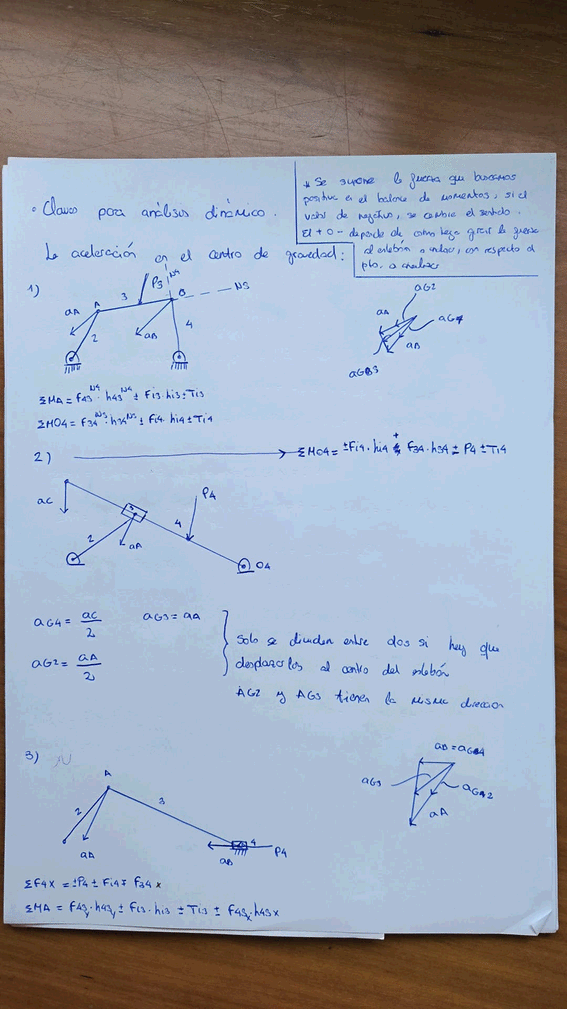 * Se supone la fuerza que buscamos
positiva en el balance de momentos, si el
valor da negativo, se cambia el sentido.
El + o - depende de como haga girar la fuerza
al eslabón a analizar, con respecto al
pto. a analizar
• Claves para análisis dinámico.
La aceleración en el centro de gravedad:
1)
P3
N4
B
N3
A
3
aA
2
aB
4
aG2
aA
aG4
aB
aG3
ΣMA = F43^N4 · h43^N4 ± Fi3 · hi3 ± Ti3
ΣMO4 = F34^N3 · h34^N3 ± Fi4 · hi4 ± Ti4
2)
ΣMO4 = ±Fi4 · hi4 ± F34 · h34 ± P4 ± Ti4
aC
3
P4
2
aA
4
O4
aG4 = aC/2
aG3 = aA
aG2 = aA/2
Solo se dividen entre dos si hay que
desplazarlos al centro del eslabón
AG2 y AG3 tienen la misma dirección
3)
A
2
3
aA
4
aB
P4
aB = aG4
aG3
aG2
aA
ΣF4X = ±P4 ± Fi4 ∓ F34 x
ΣMA = F43y · h43y ± Fi3 · hi3 ± Ti3 ± F43x · h43x